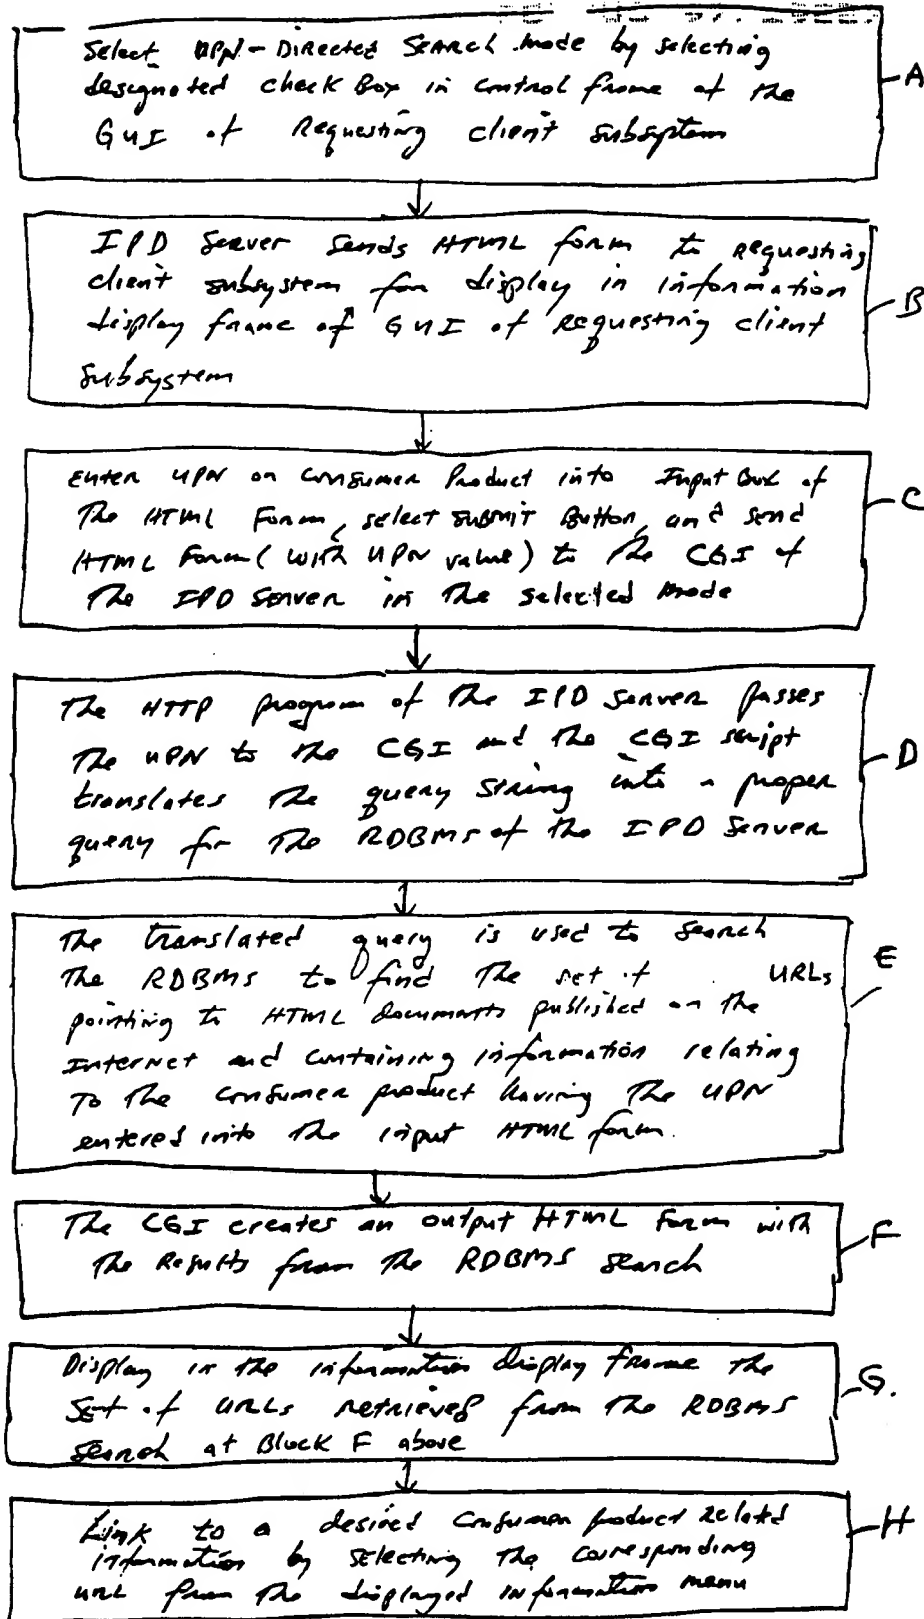 Select UPN-Directed Search mode by selecting
designated check Box in control frame of the
GUI of Requesting client subsystem
A
IPD Server Sends HTML form to requesting
client subsystem for display in information
display frame of GUI of requesting client
subsystem
B
Enter UPN on Consumer Product into Input Box of
The HTML Form, select submit Button, and send
HTML Form (with UPN value) to the CGI of
The IPD Server in the selected mode
C
The HTTP program of the IPD Server passes
The UPN to the CGI and the CGI script
translates the query string into a proper
query for the RDBMS of the IPD Server
D
The translated query is used to search
The RDBMS to find the set of URLs
pointing to HTML documents published on the
Internet and containing information relating
To the consumer product having the UPN
entered into the input HTML form.
E
The CGI creates an output HTML Form with
the Results from the RDBMS search
F
Display in the information display frame the
Set of URLs retrieved from the RDBMS
search at Block F above
G.
Link to a desired consumer product Related
information by selecting the corresponding
URL from the displayed information menu
H